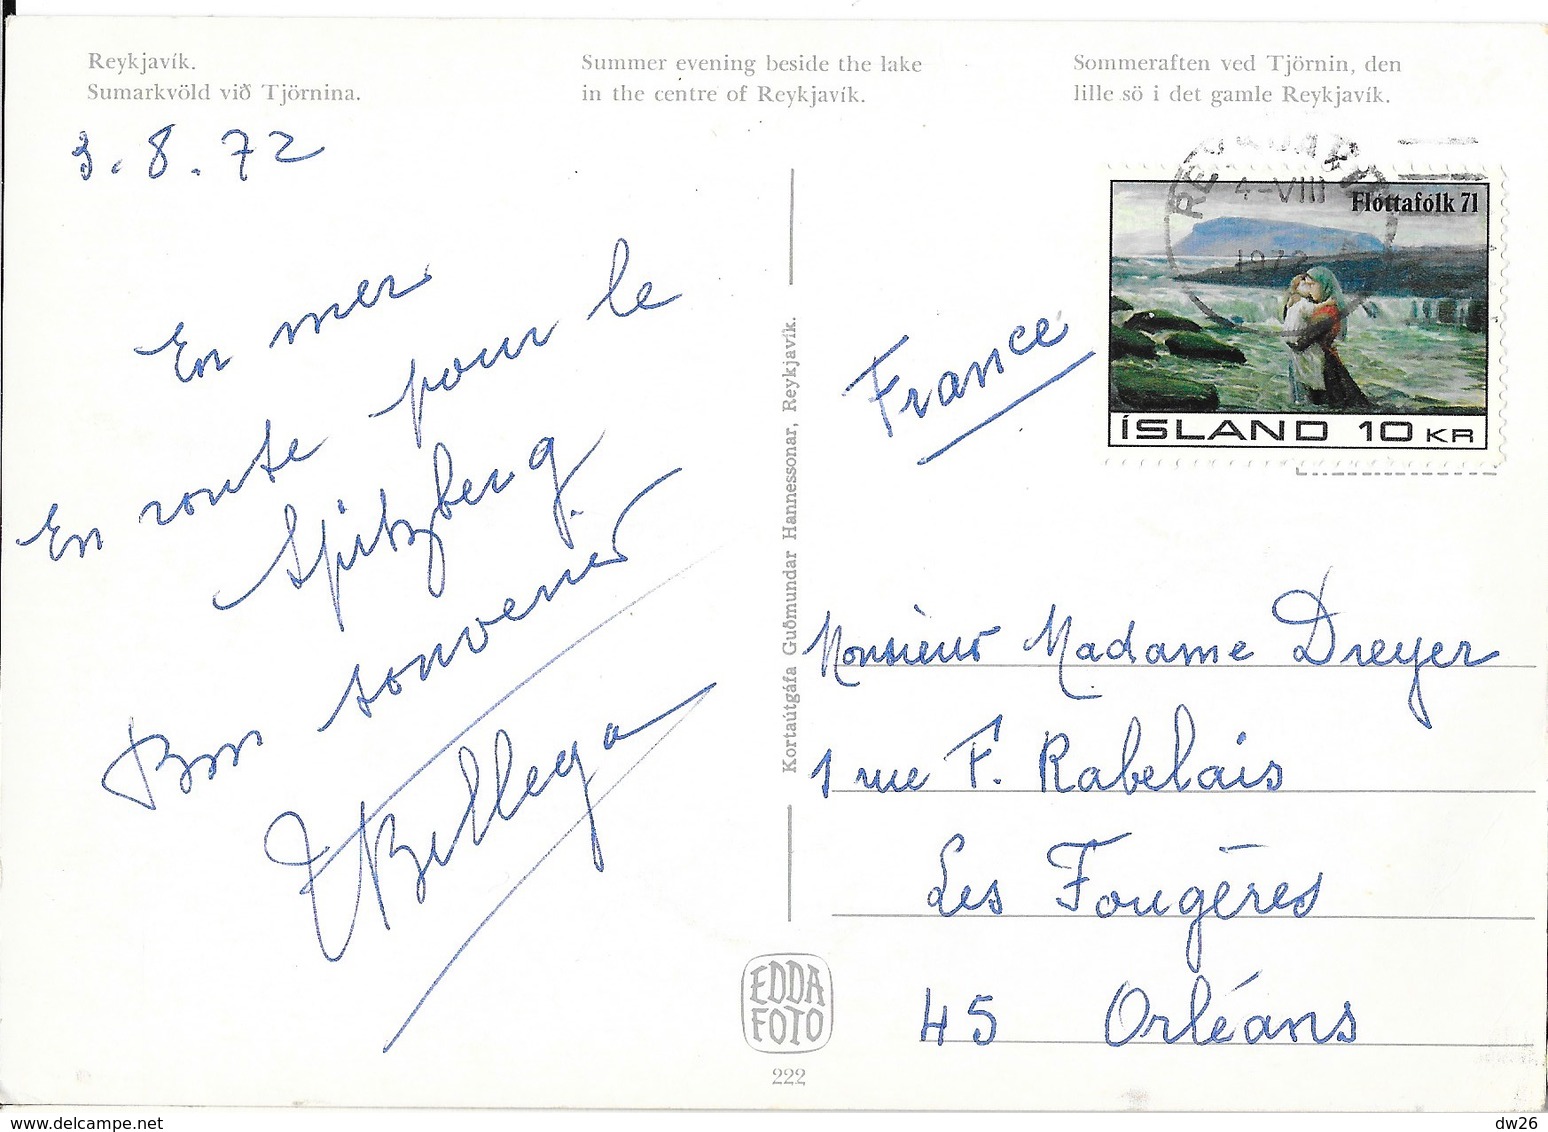 Reykjavík.
Sumarkvöld við Tjörnina.
Summer evening beside the lake
in the centre of Reykjavík.
Sommeraften ved Tjörnin, den
lille sö i det gamle Reykjavík.
3.8.72
En mer
En route pour le
Spitzberg
Bon souvenir
4-VIII
1972
Flóttafólk 71
ÍSLAND 10 KR
France
Kortaútgáfa Guðmundar Hannessonar, Reykjavík.
Monsieur Madame Dreyer
1 rue F. Rabelais
Les Fougères
45 Orléans
EDDA
FOTO
222
www.delcampe.net
dw26